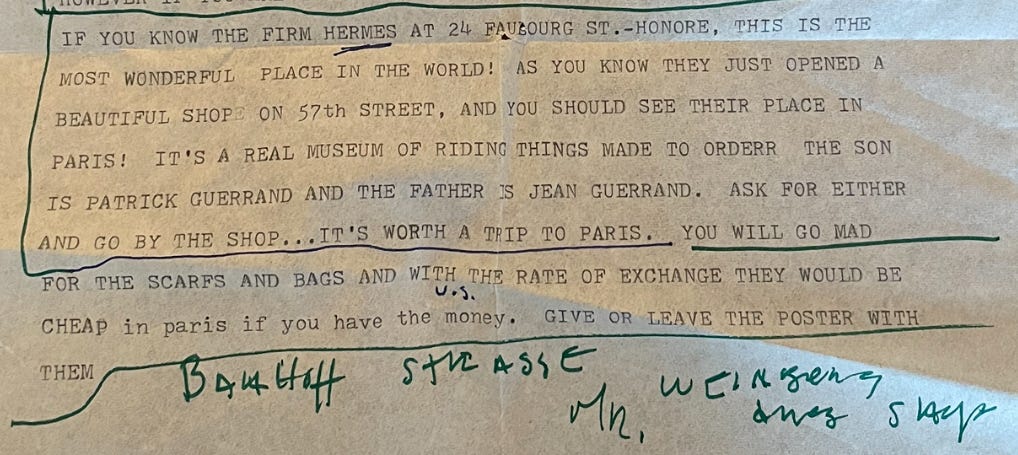 HOWEVER IF YOU
IF YOU KNOW THE FIRM HERMES AT 24 FAUBOURG ST.-HONORE, THIS IS THE
MOST WONDERFUL PLACE IN THE WORLD! AS YOU KNOW THEY JUST OPENED A
BEAUTIFUL SHOPE ON 57th STREET, AND YOU SHOULD SEE THEIR PLACE IN
PARIS! IT'S A REAL MUSEUM OF RIDING THINGS MADE TO ORDERR THE SON
IS PATRICK GUERRAND AND THE FATHER IS JEAN GUERRAND. ASK FOR EITHER
AND GO BY THE SHOP...IT'S WORTH A TRIP TO PARIS. YOU WILL GO MAD
FOR THE SCARFS AND BAGS AND WITH THE RATE OF EXCHANGE THEY WOULD BE
U.S.
CHEAP in paris if you have the money. GIVE OR LEAVE THE POSTER WITH
THEM
BAHHOFF STRASSE
MR. WEINBERG
SHOP